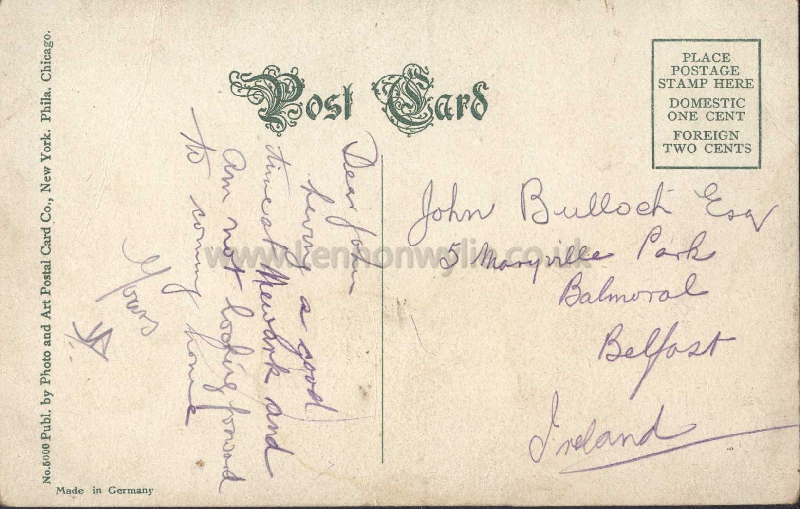 Post Card
PLACE
POSTAGE
STAMP HERE
DOMESTIC
ONE CENT
FOREIGN
TWO CENTS
No.5000 Publ. by Photo and Art Postal Card Co., New York. Phila. Chicago.
Dear John
having a good
time at Newark and
am not looking forward
to coming home
Yours
John Bulloch Esq
5 Maryville Park
Balmoral
Belfast
Ireland
Made in Germany
www.lennonwylie.co.uk